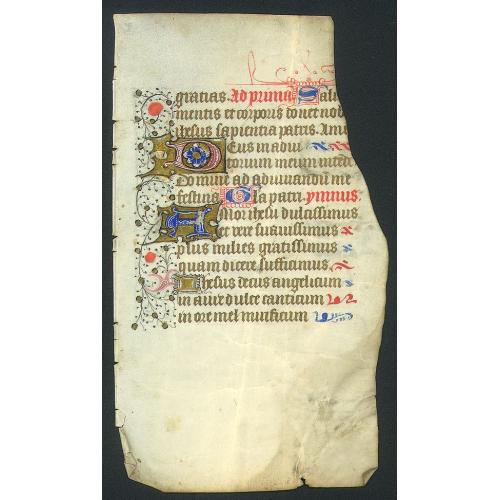 gratias. Ad primā Sal
mentis et corporis donet nob
ihesus sapientia patris. Amē
Deus in adiu
torium meum intēde
Domine ad adiuvandū me
festina Gla patri. ymnus.
Amor ihesu dulcissimus
et vere suavissimus
plus milies gratissimus
quam dicere sufficimus
Ihesus decus angelicum
in aure dulce canticum
in ore mel mirificum